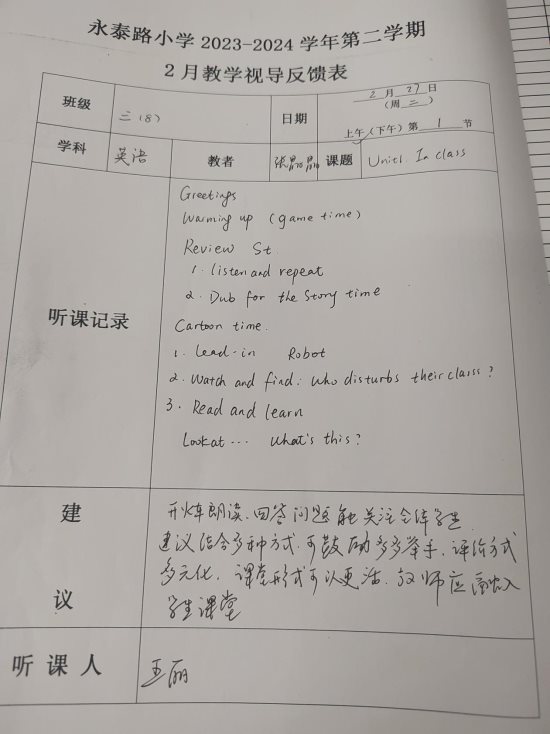 永泰路小学 2023-2024 学年第二学期
2 月教学视导反馈表
班级 三（8） 日期 2 月 27 日
（周 二）
上午/（下午）第 1 节
学科 英语 教者 张晶晶 课题 Unit1 In class
听课记录
Greetings
Warming up (game time)
Review St.
1. listen and repeat
2. Dub for the Story time
Cartoon time.
1. Lead-in Robot
2. Watch and find: Who disturbs their class?
3. Read and learn
Look at ... What's this?
建议
开火车朗读、回答问题能关注全体学生.
建议结合多种方式.可鼓励多多举手,评价方式
多元化, 课堂形式可以更活. 教师应融入
学生课堂
听课人 王丽